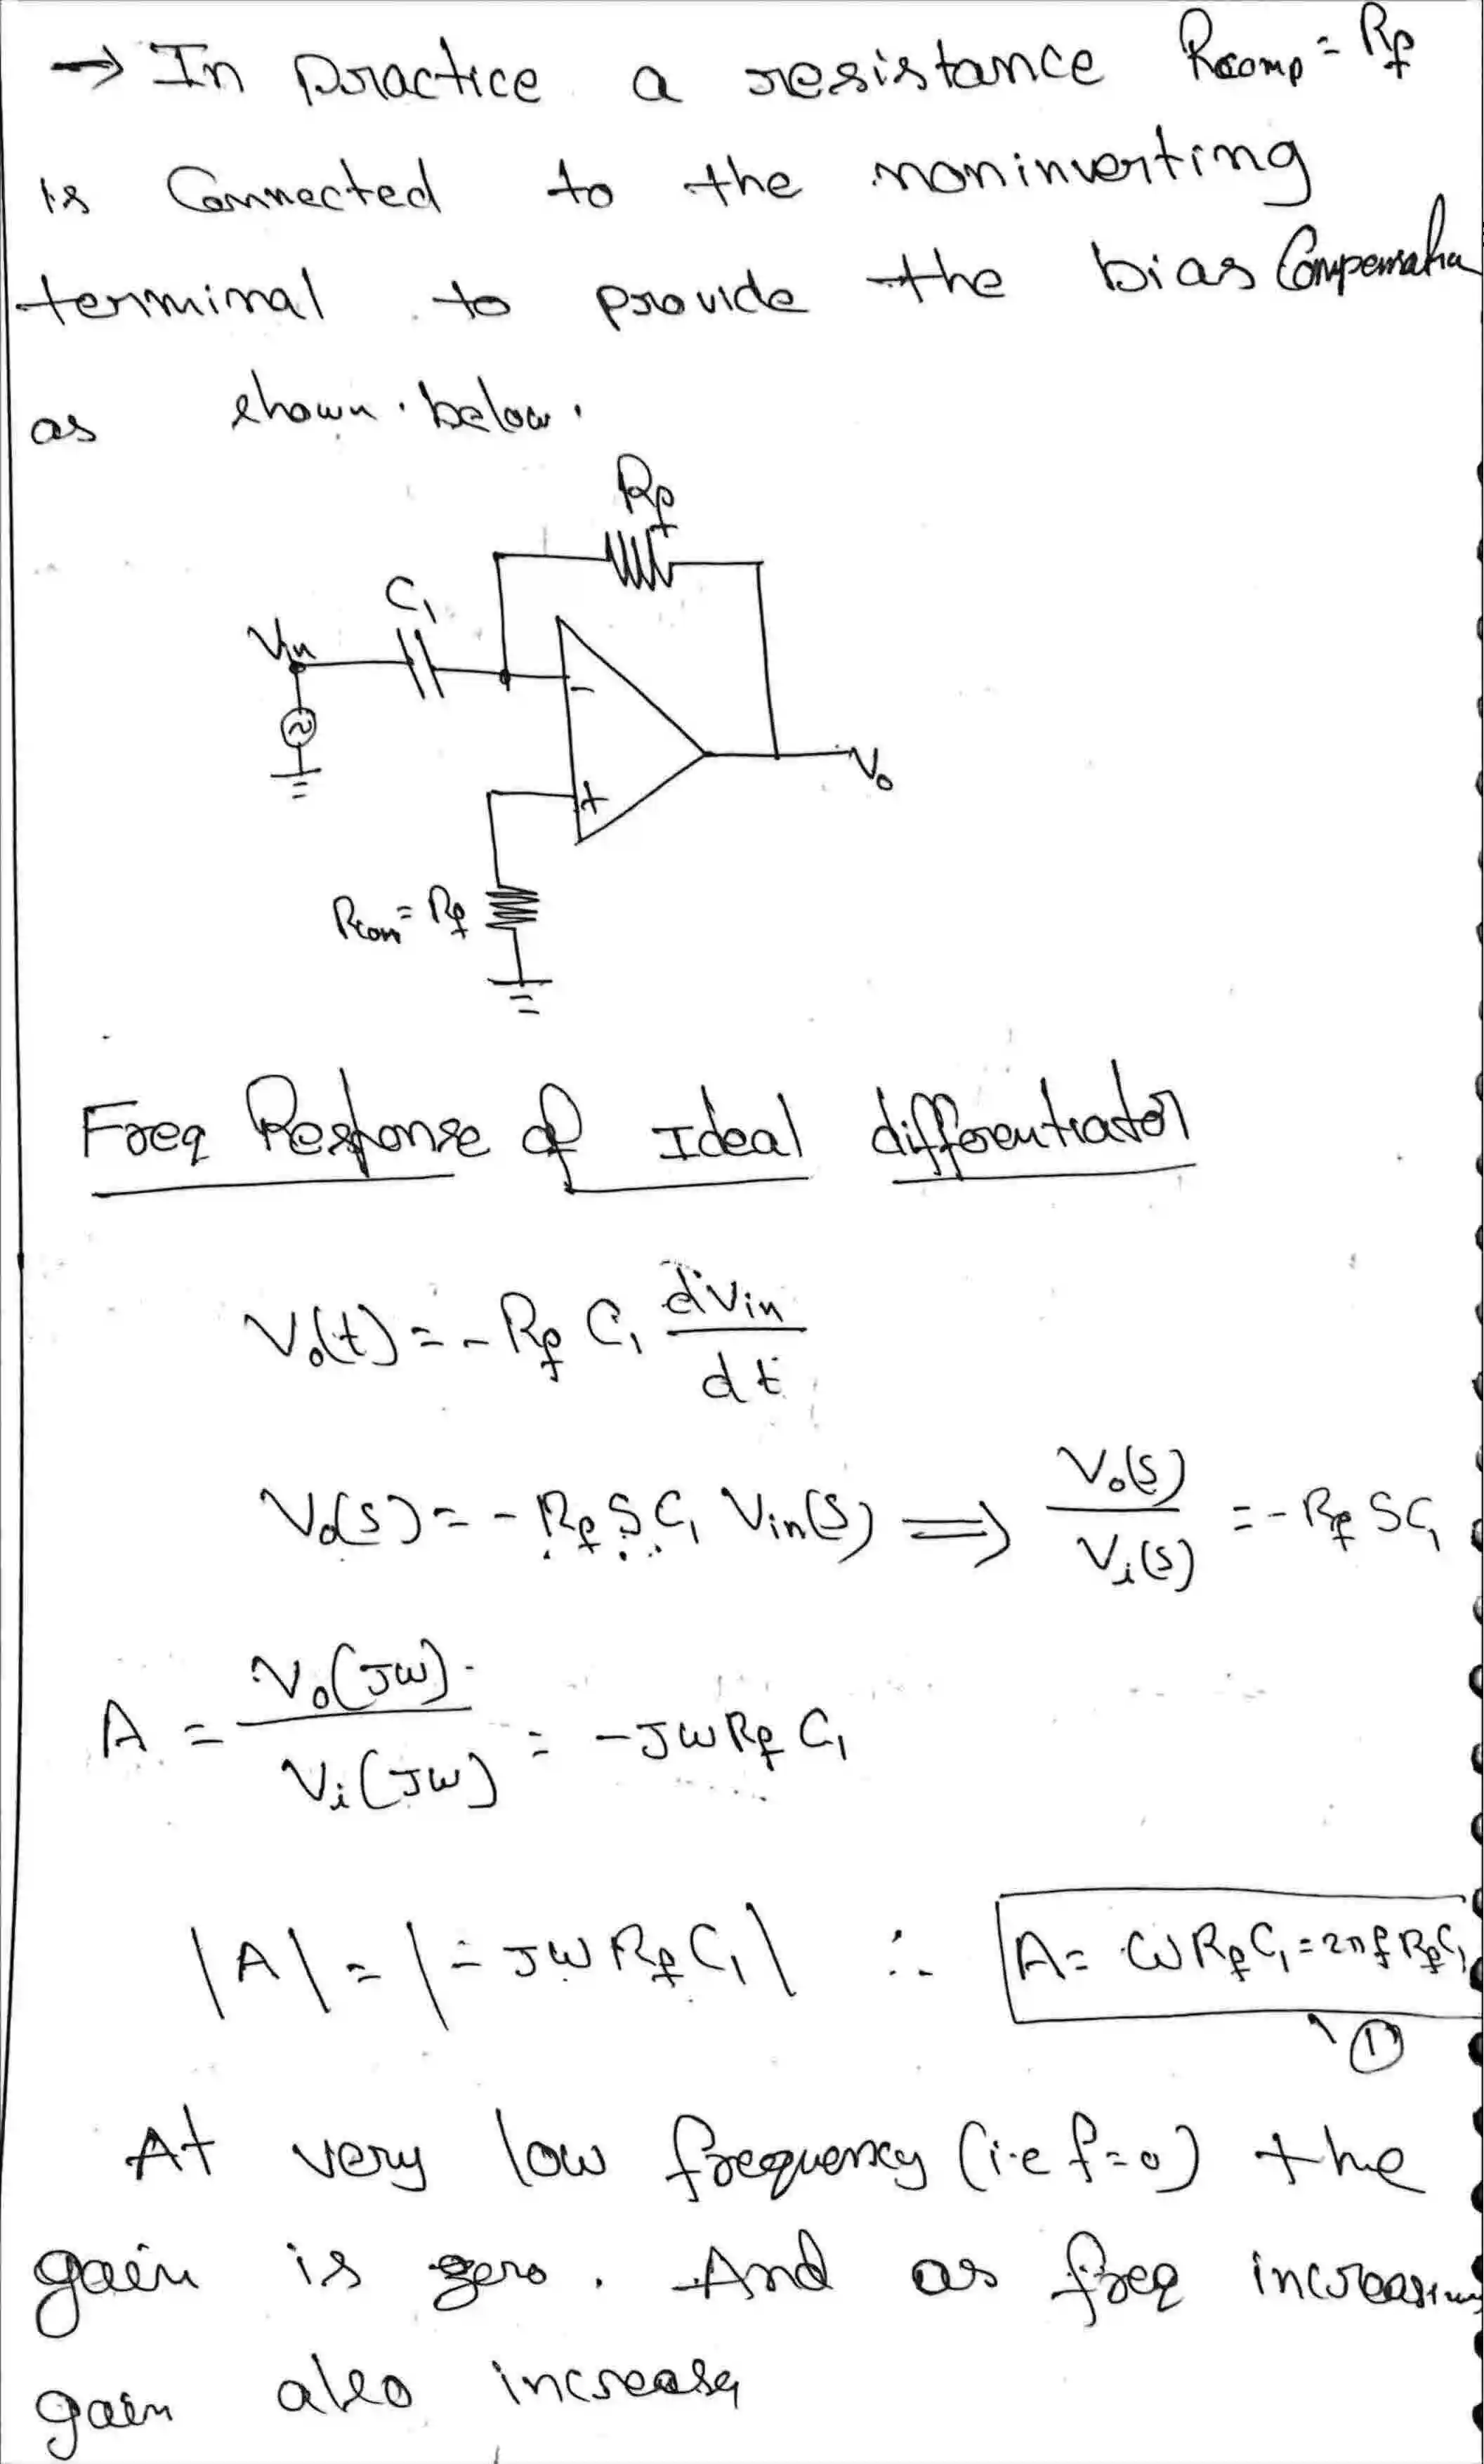 → In practice a resistance Rcomp = Rf
is Connected to the noninverting
terminal to provide the bias Compensation
as shown below.
Rf
C1
Vin
-
Vo
+
Rcom = Rf
Freq Response of Ideal differentiator
Vo(t) = - Rf C1 dVin/dt
Vo(s) = - Rf S C1 Vin(s) ⟹ Vo(s)/Vi(s) = - Rf S C1
A = Vo(jw)/Vi(jw) = - jw Rf C1
|A| = |- jw Rf C1| ∴ A = ω Rf C1 = 2πf Rf C1
①
At very low frequency (i.e f=0) the
gain is zero. And as freq increasing
gain also increases